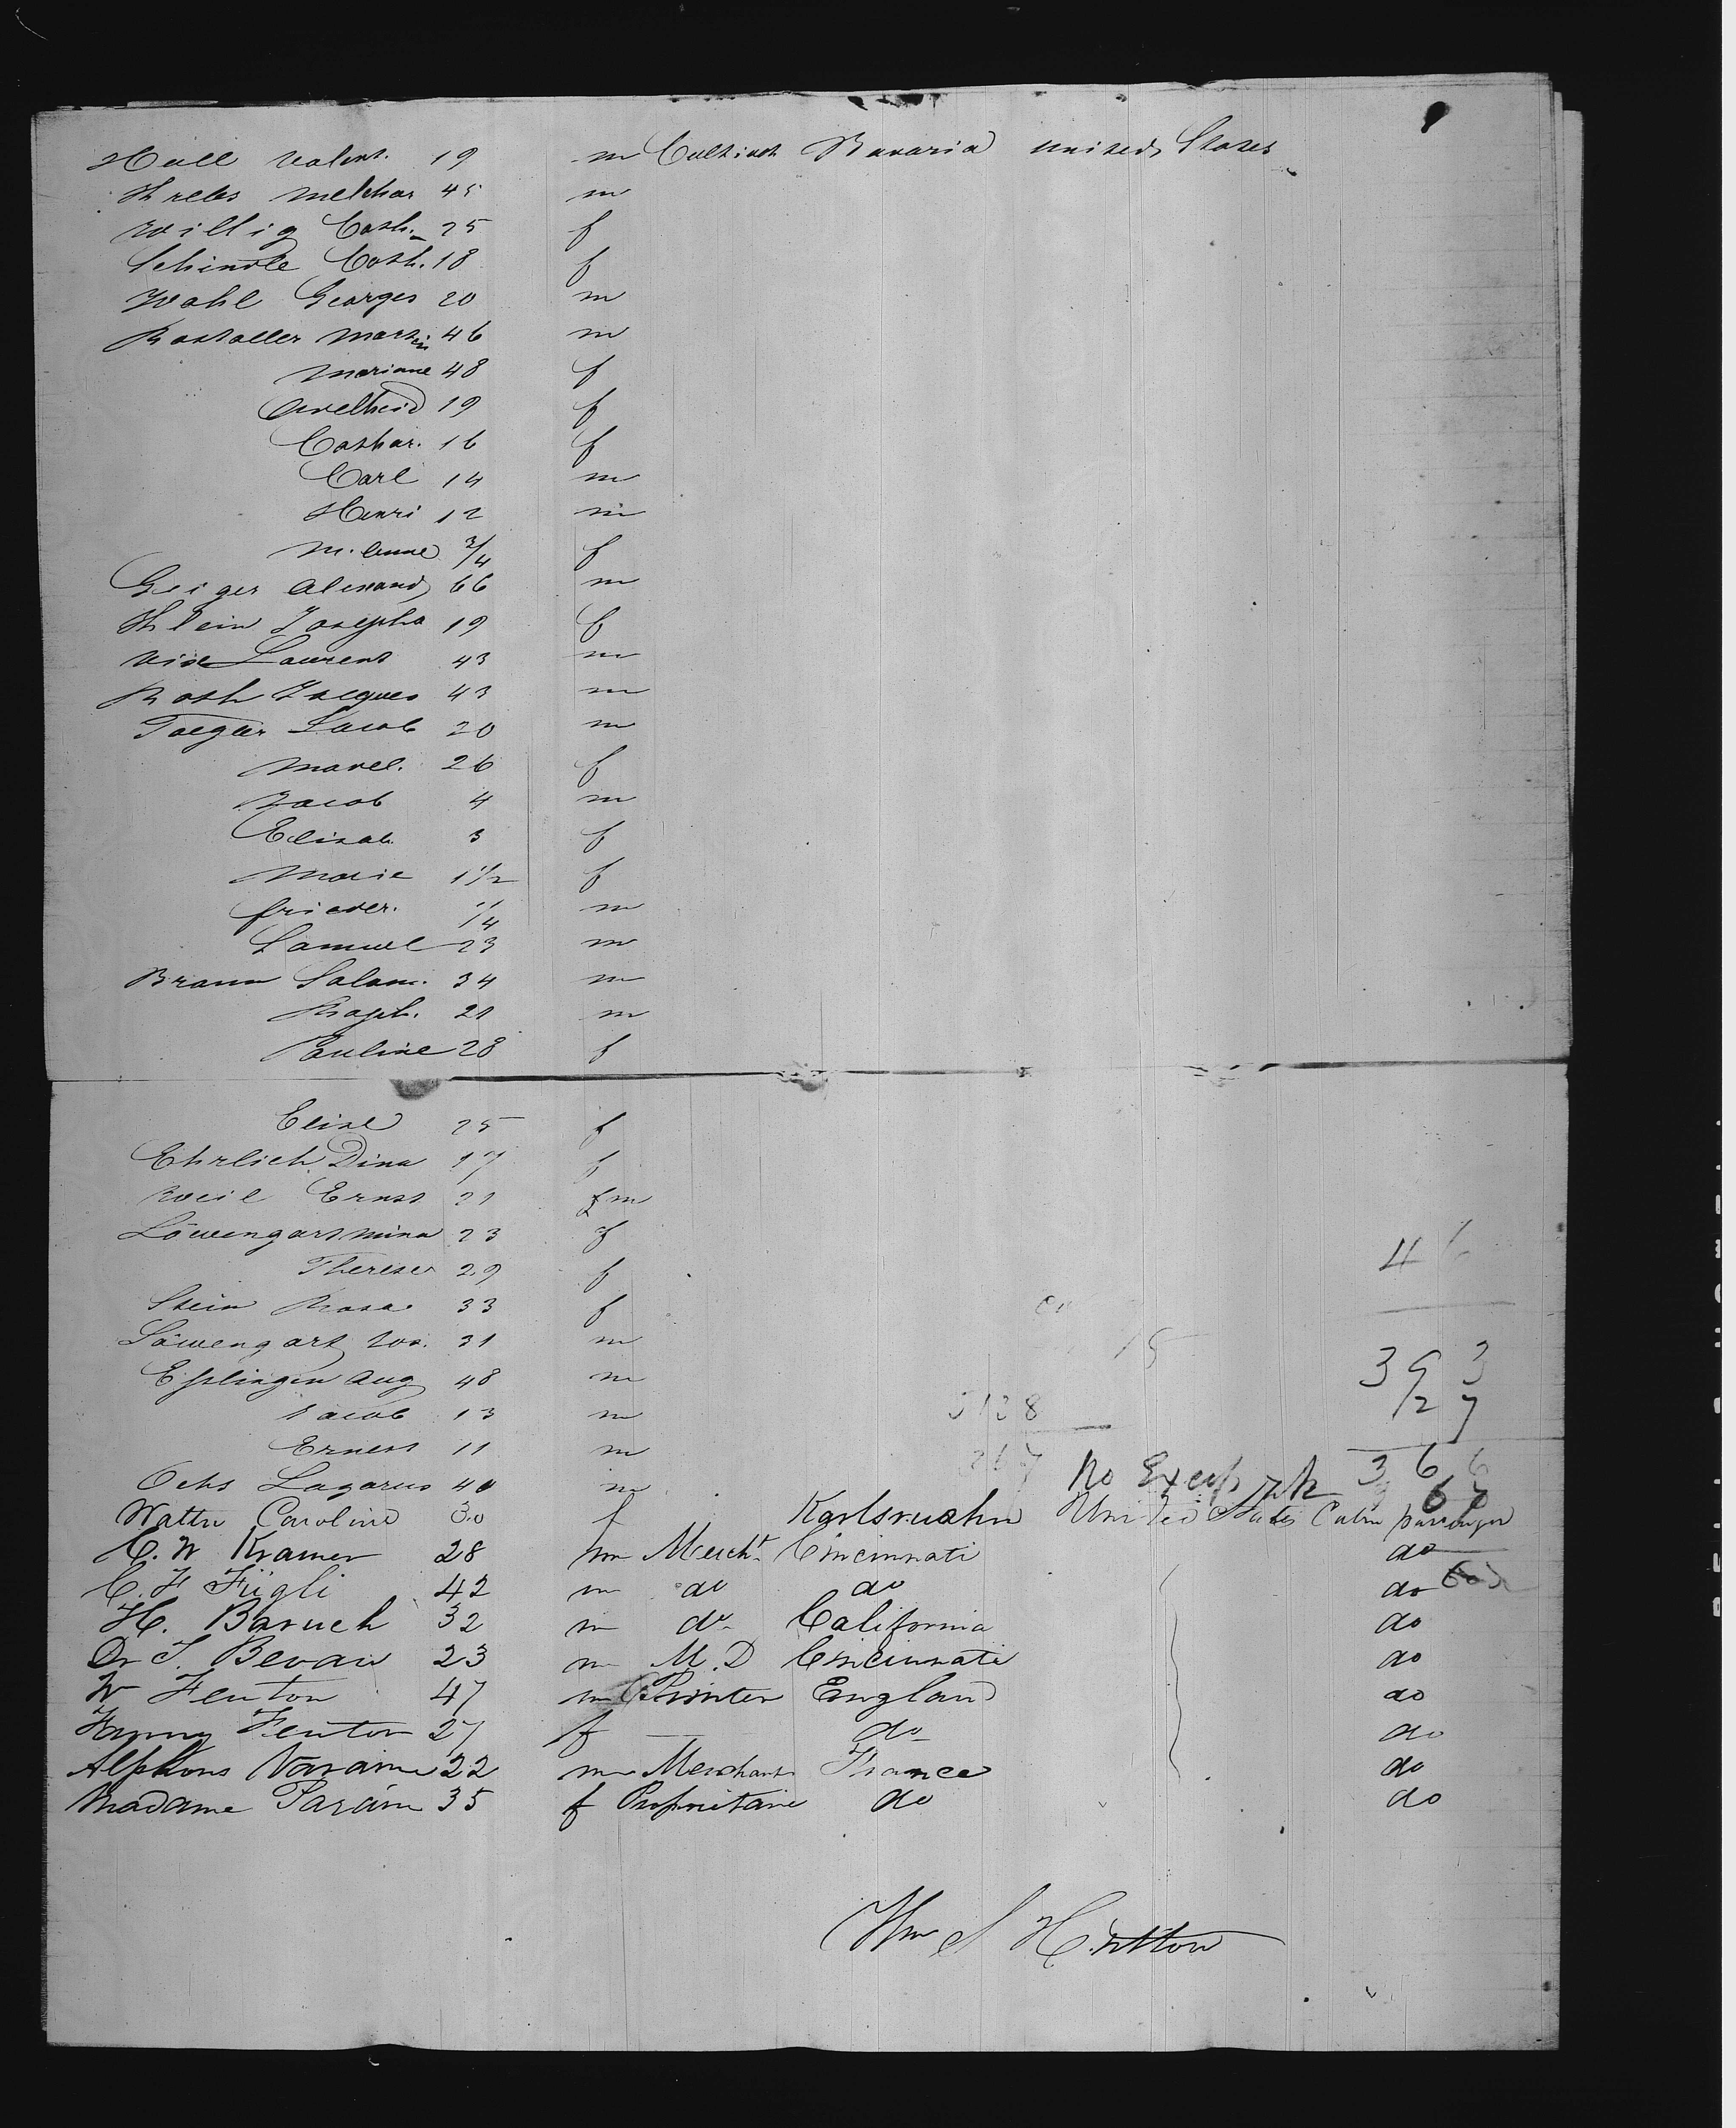 Hall Valent. 19 m Cultivat Bavaria united States
Krebs Melchor 45 m
Willig Cath. 25 f
Schindle Cath. 18 f
Wahl Georges 20 m
Rostaller Martin 46 m
Mariane 48 f
Adelheid 19 f
Cathar. 16 f
Carl 14 m
Henri 12 m
M. Anne 3/4 f
Geiger Alexand 66 m
Klein Josepha 19 f
Laurent 43 m
Roth Jacques 43 m
Jacob 30 m
26 f
Jacob 4 m
Elisab. 3 f
Marie 1 1/2 f
frieder. 1/4 m
Samuel 23 m
Braun Salom. 34 m
Raph. 21 m
Pauline 28 f
Elise 25 f
Ehrlich Dina 17 f
Weil Ernst 21 m
Löwengart Mina 23 f
Therese 29 f
Stein Rosa 33 f
Löwengart 31 m
Esslingen Aug 48 m
Jacob 13 m
Ernest 11 m
Ochs Lazarus 40 m
Caroline 30 f Karlsruahn United States Cabin passenger
C. W Kramer 28 m Mercht. Cincinnati do
C. F Fügli 42 m do do do
H. Baruch 32 m do California do
Dr S. Bevan 23 m M.D Cincinnati do
W Fenton 47 m Printer England do
Fanny Fenton 27 f — do do
Alphons 22 m Merchant France do
Madame 35 f Proprietaire do do
3 9 3
2 7
3 6 6
Wm S Hutton